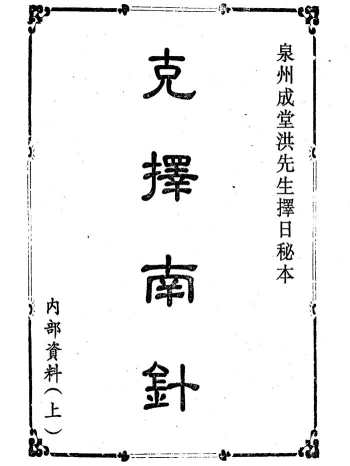 泉州成堂洪先生擇日秘本
克擇南針
內部資料(上)